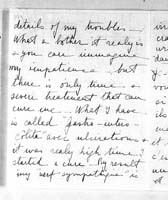 details of my troubles —
What a bother it really is
you can immagine
my impatience — but
there is only time & a
severe treatment that can
cure me — What I have
is called gastro-entro-
colite avec ulcerations &
it was really high time I
started a cure — By result
my nerf sympatique is